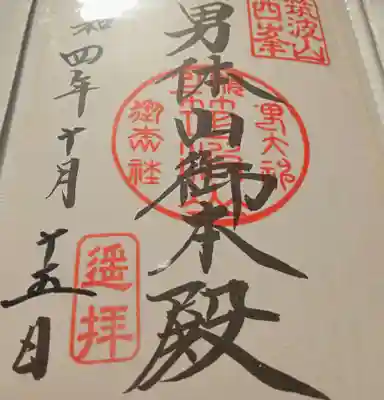 筑波山
西峯
男体山御本殿
男大神
御本社
和四年十月
十五日
遥拝